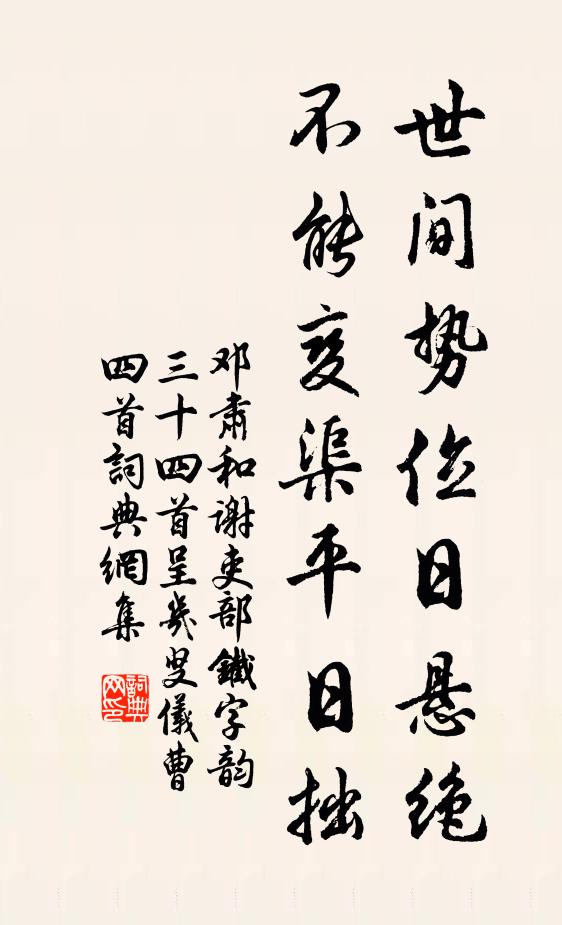 世间势位日悬绝
不能变渠平日拙
邓肃和谢吏部鐵字韵
三十四首呈幾叟儀曹
四首詞典網集
詞典
网印